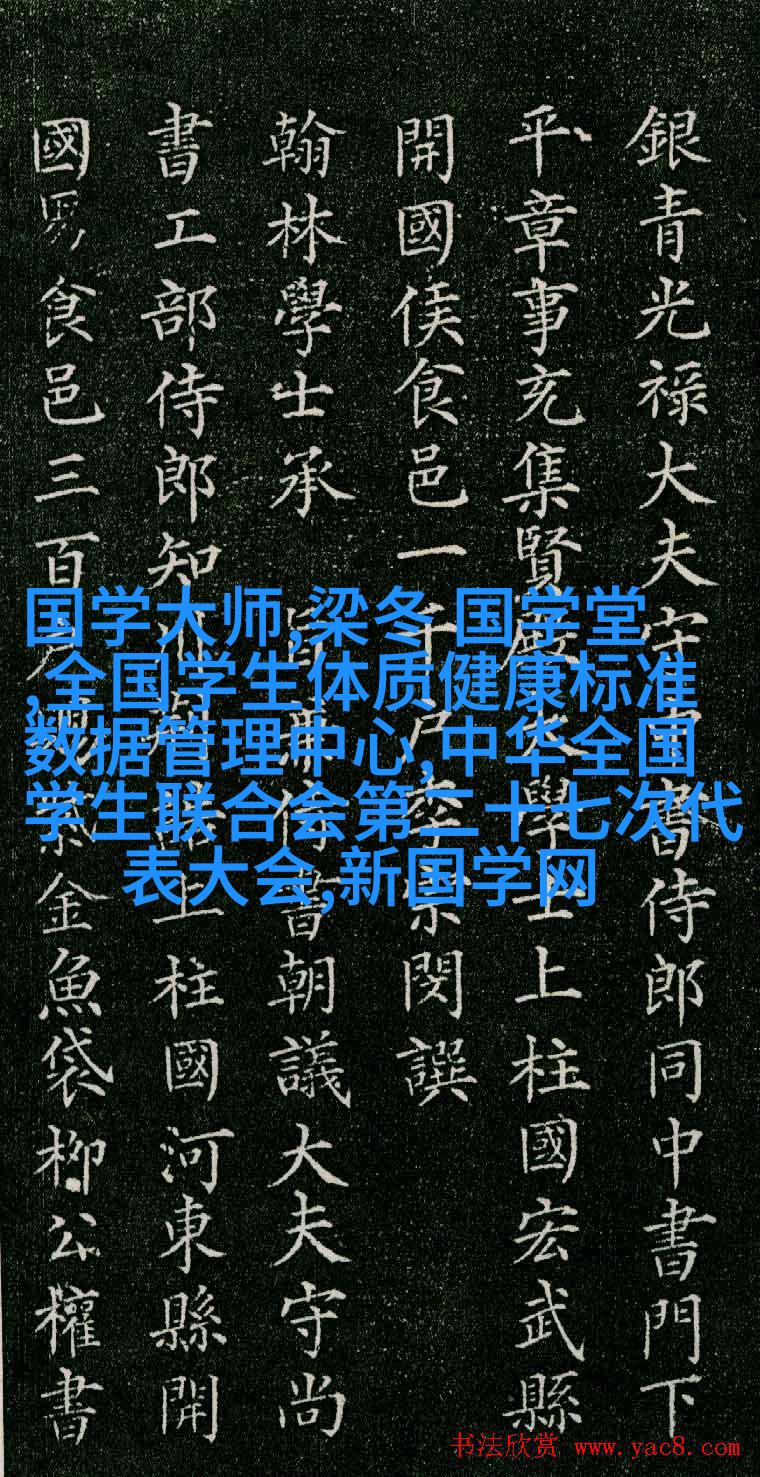 銀青光祿大夫守中書侍郎同中書門下
平章事充集賢殿大學士上柱國宏武縣
開國侯食邑一千戶李宗閔譔
翰林學士承 旨兼侍書朝議大夫守尚
書工部侍郎知 誥上柱國河東縣開
國男食邑三百戶賜紫金魚袋柳公權書
国学大师,梁冬 国学堂
,全国学生体质健康标准
数据管理中心,中华全国
学生联合会第二十七次代
表大会,新国学网
书法欣赏 www.yac8.com